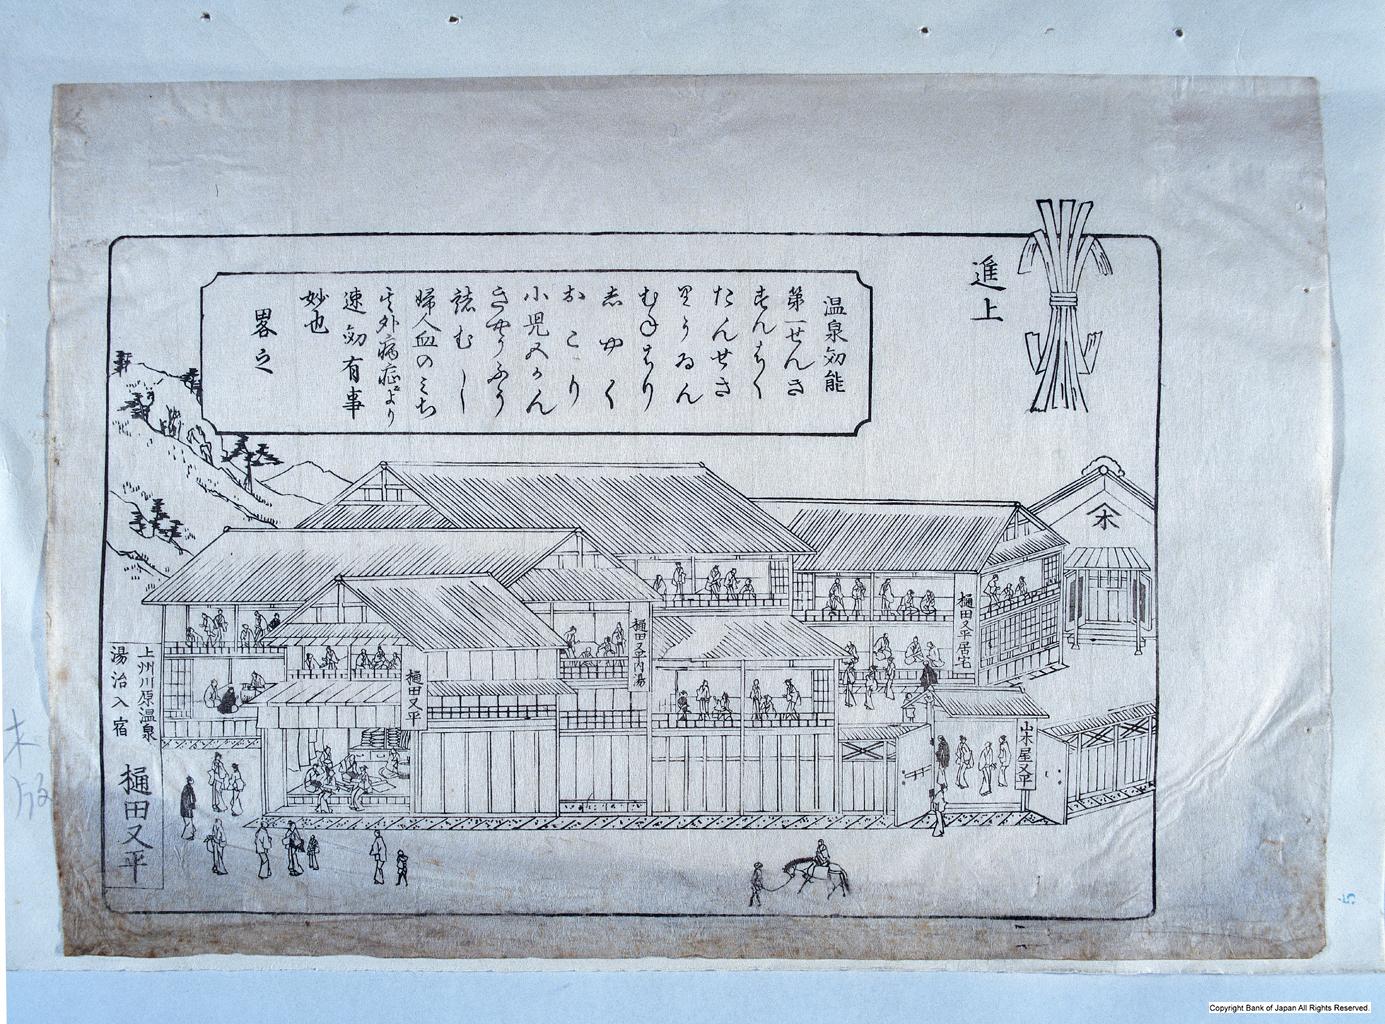 進上
温泉効能
第一せんき
すんはく
たんせき
りうゐん
むねはり
志やく
おこり
小児五かん
きやうふう
諸むし
婦人血のミち
其外病症により
速効有事
妙也
畧之
木
樋田又平居宅
山木屋又平
樋田又平内湯
樋田又平
上州川原温泉
湯治入宿
樋田又平
5
Copyright Bank of Japan All Rights Reserved.